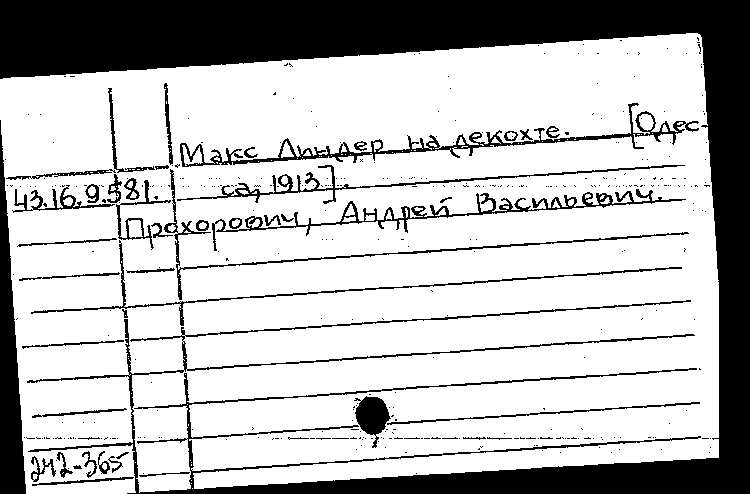 Макс Линдер на декохте. [Одес-
43.16.9.581. са, 1913].
Прохорович, Андрей Васильевич.
242-365